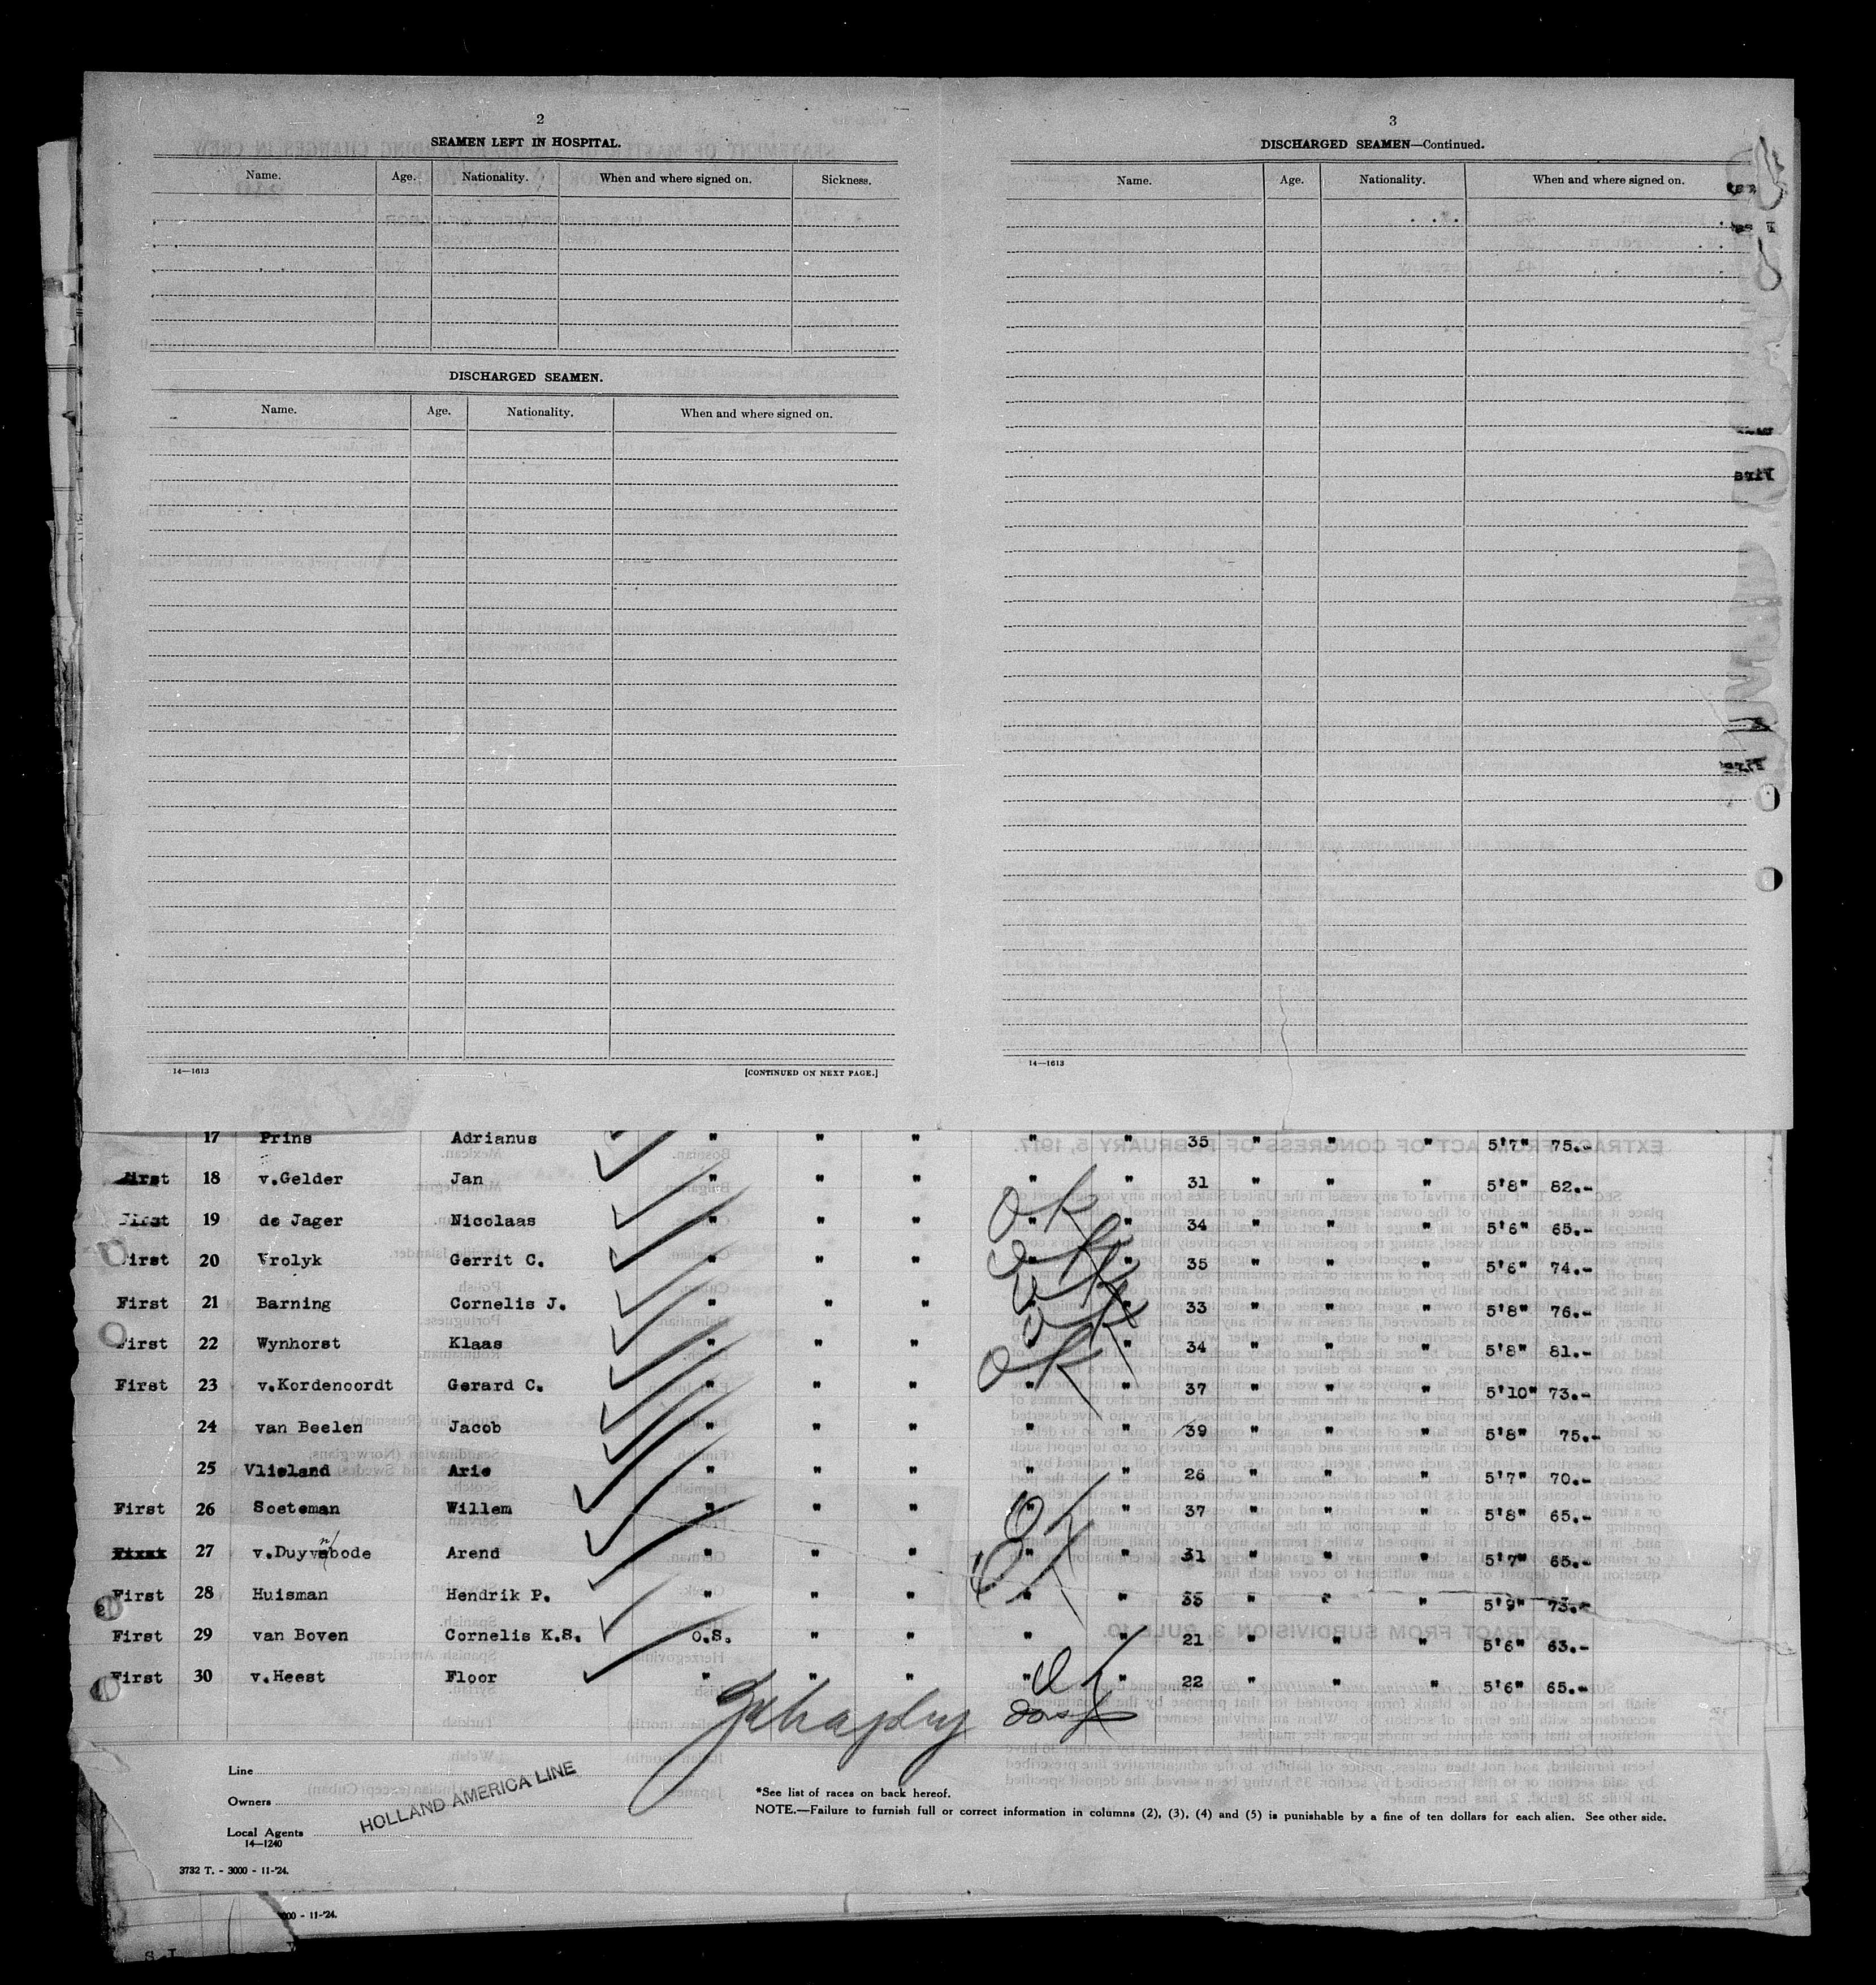 2
SEAMEN LEFT IN HOSPITAL.
Name. Age. Nationality. When and where signed on. Sickness.
DISCHARGED SEAMEN.
Name. Age. Nationality. When and where signed on.
14—1613 [CONTINUED ON NEXT PAGE.]
3
DISCHARGED SEAMEN—Continued.
Name. Age. Nationality. When and where signed on.
14—1613
17 Prins Adrianus " " " " " 35 " " " 5'7" 75.-
First 18 v.Gelder Jan " " " " " 31 " " " 5'8" 82.-
First 19 de Jager Nicolaas " " " " " 34 " " " 5'6" 65.-
First 20 Vrolyk Gerrit C. " " " " " 35 " " " 5'6" 74.-
First 21 Barning Cornelis J. " " " " " 33 " " " 5'8" 76.-
First 22 Wynhorst Klaas " " " " " 34 " " " 5'8" 81.-
First 23 v.Kordenoordt Gerard C. " " " " " 37 " " " 5'10" 73.-
24 van Beelen Jacob " " " " " 39 " " " 5'8" 75.-
25 Vlieland Arie " " " " " 26 " " " 5'7" 70.-
First 26 Soeteman Willem " " " " " 37 " " " 5'8" 65.-
27 v.Duyvnbode Arend " " " " " 31 " " " 5'7" 65.-
First 28 Huisman Hendrik P. " " " " " 35 " " " 5'9" 73.-
First 29 van Boven Cornelis K.S. O.S. " " " " 21 " " " 5'6" 63.-
First 30 v.Heest Floor " " " " " 22 " " " 5'6" 65.-
Line
Owners
Local Agents
14—1240
HOLLAND AMERICA LINE
*See list of races on back hereof.
NOTE.—Failure to furnish full or correct information in columns (2), (3), (4) and (5) is punishable by a fine of ten dollars for each alien. See other side.
3732 T. - 3000 - 11-'24.
000 - 11-'24.